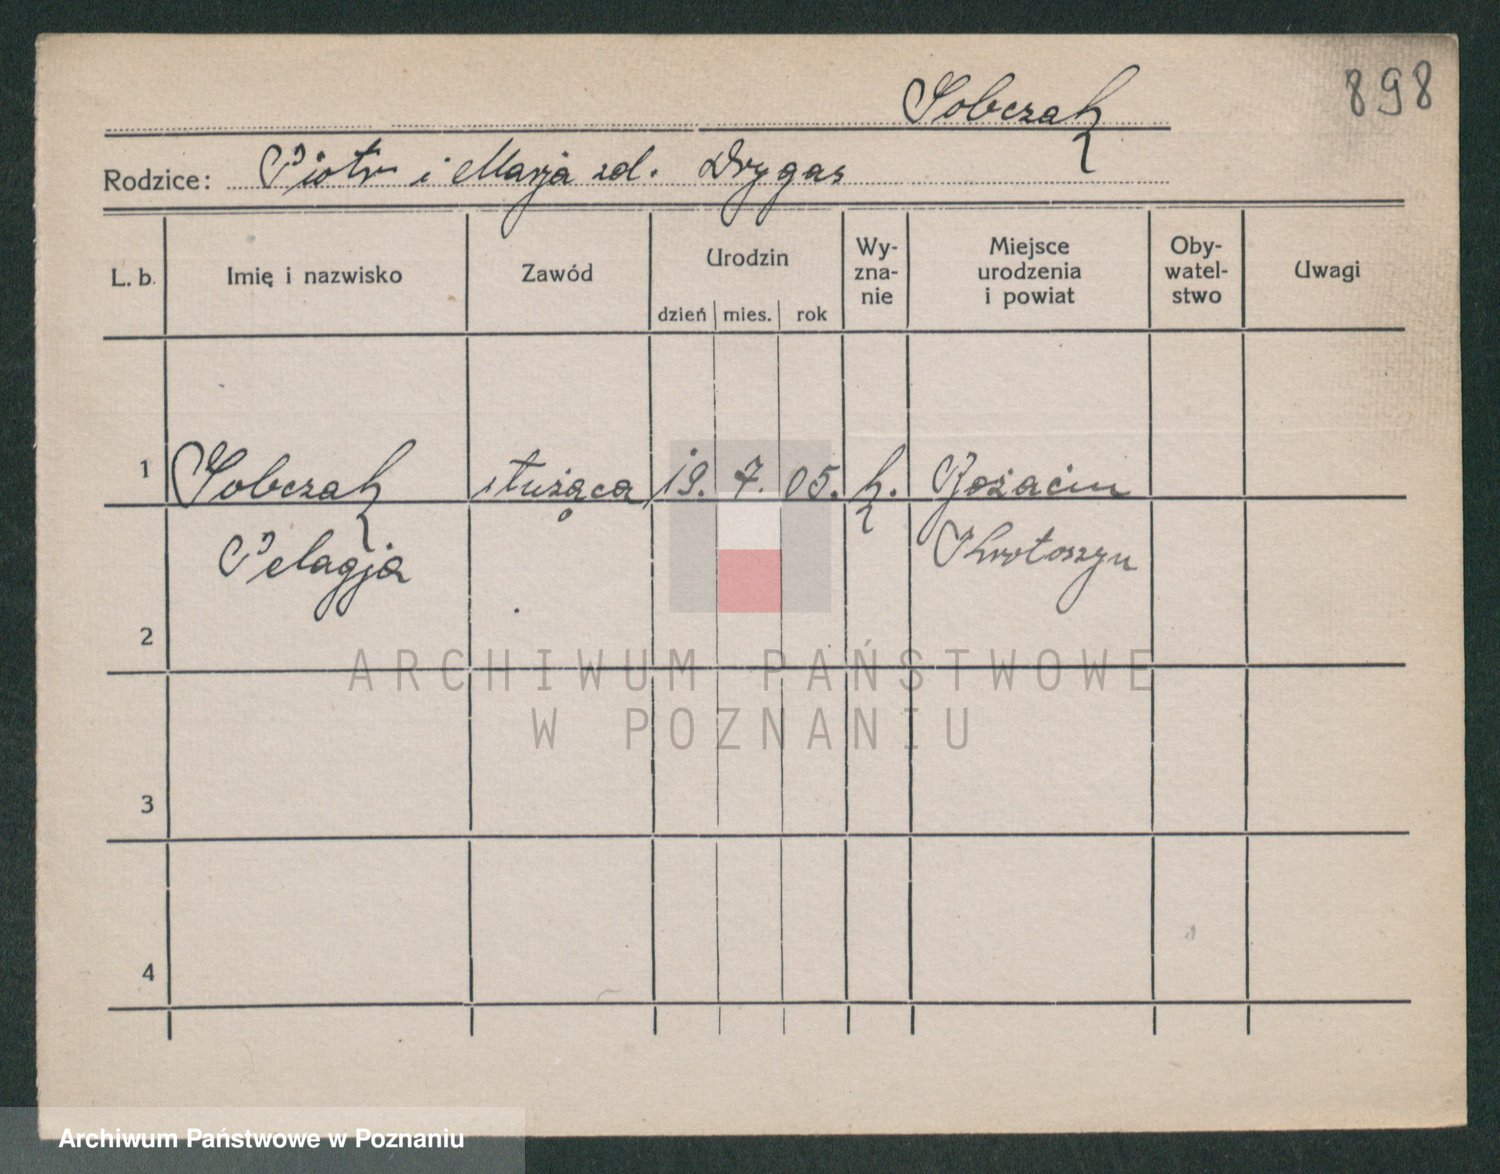 898
Sobczak
Rodzice: Piotr i Marja zd. Drygas
L. b. Imię i nazwisko Zawód Urodzin dzień mies. rok Wy-zna-nie Miejsce urodzenia i powiat Oby-watel-stwo Uwagi
1 Sobczak służąca 19. 7. 05. k. Rożacin
Pelagja Krotoszyn
2
ARCHIWUM PAŃSTWOWE
W POZNANIU
3
4
Archiwum Państwowe w Poznaniu